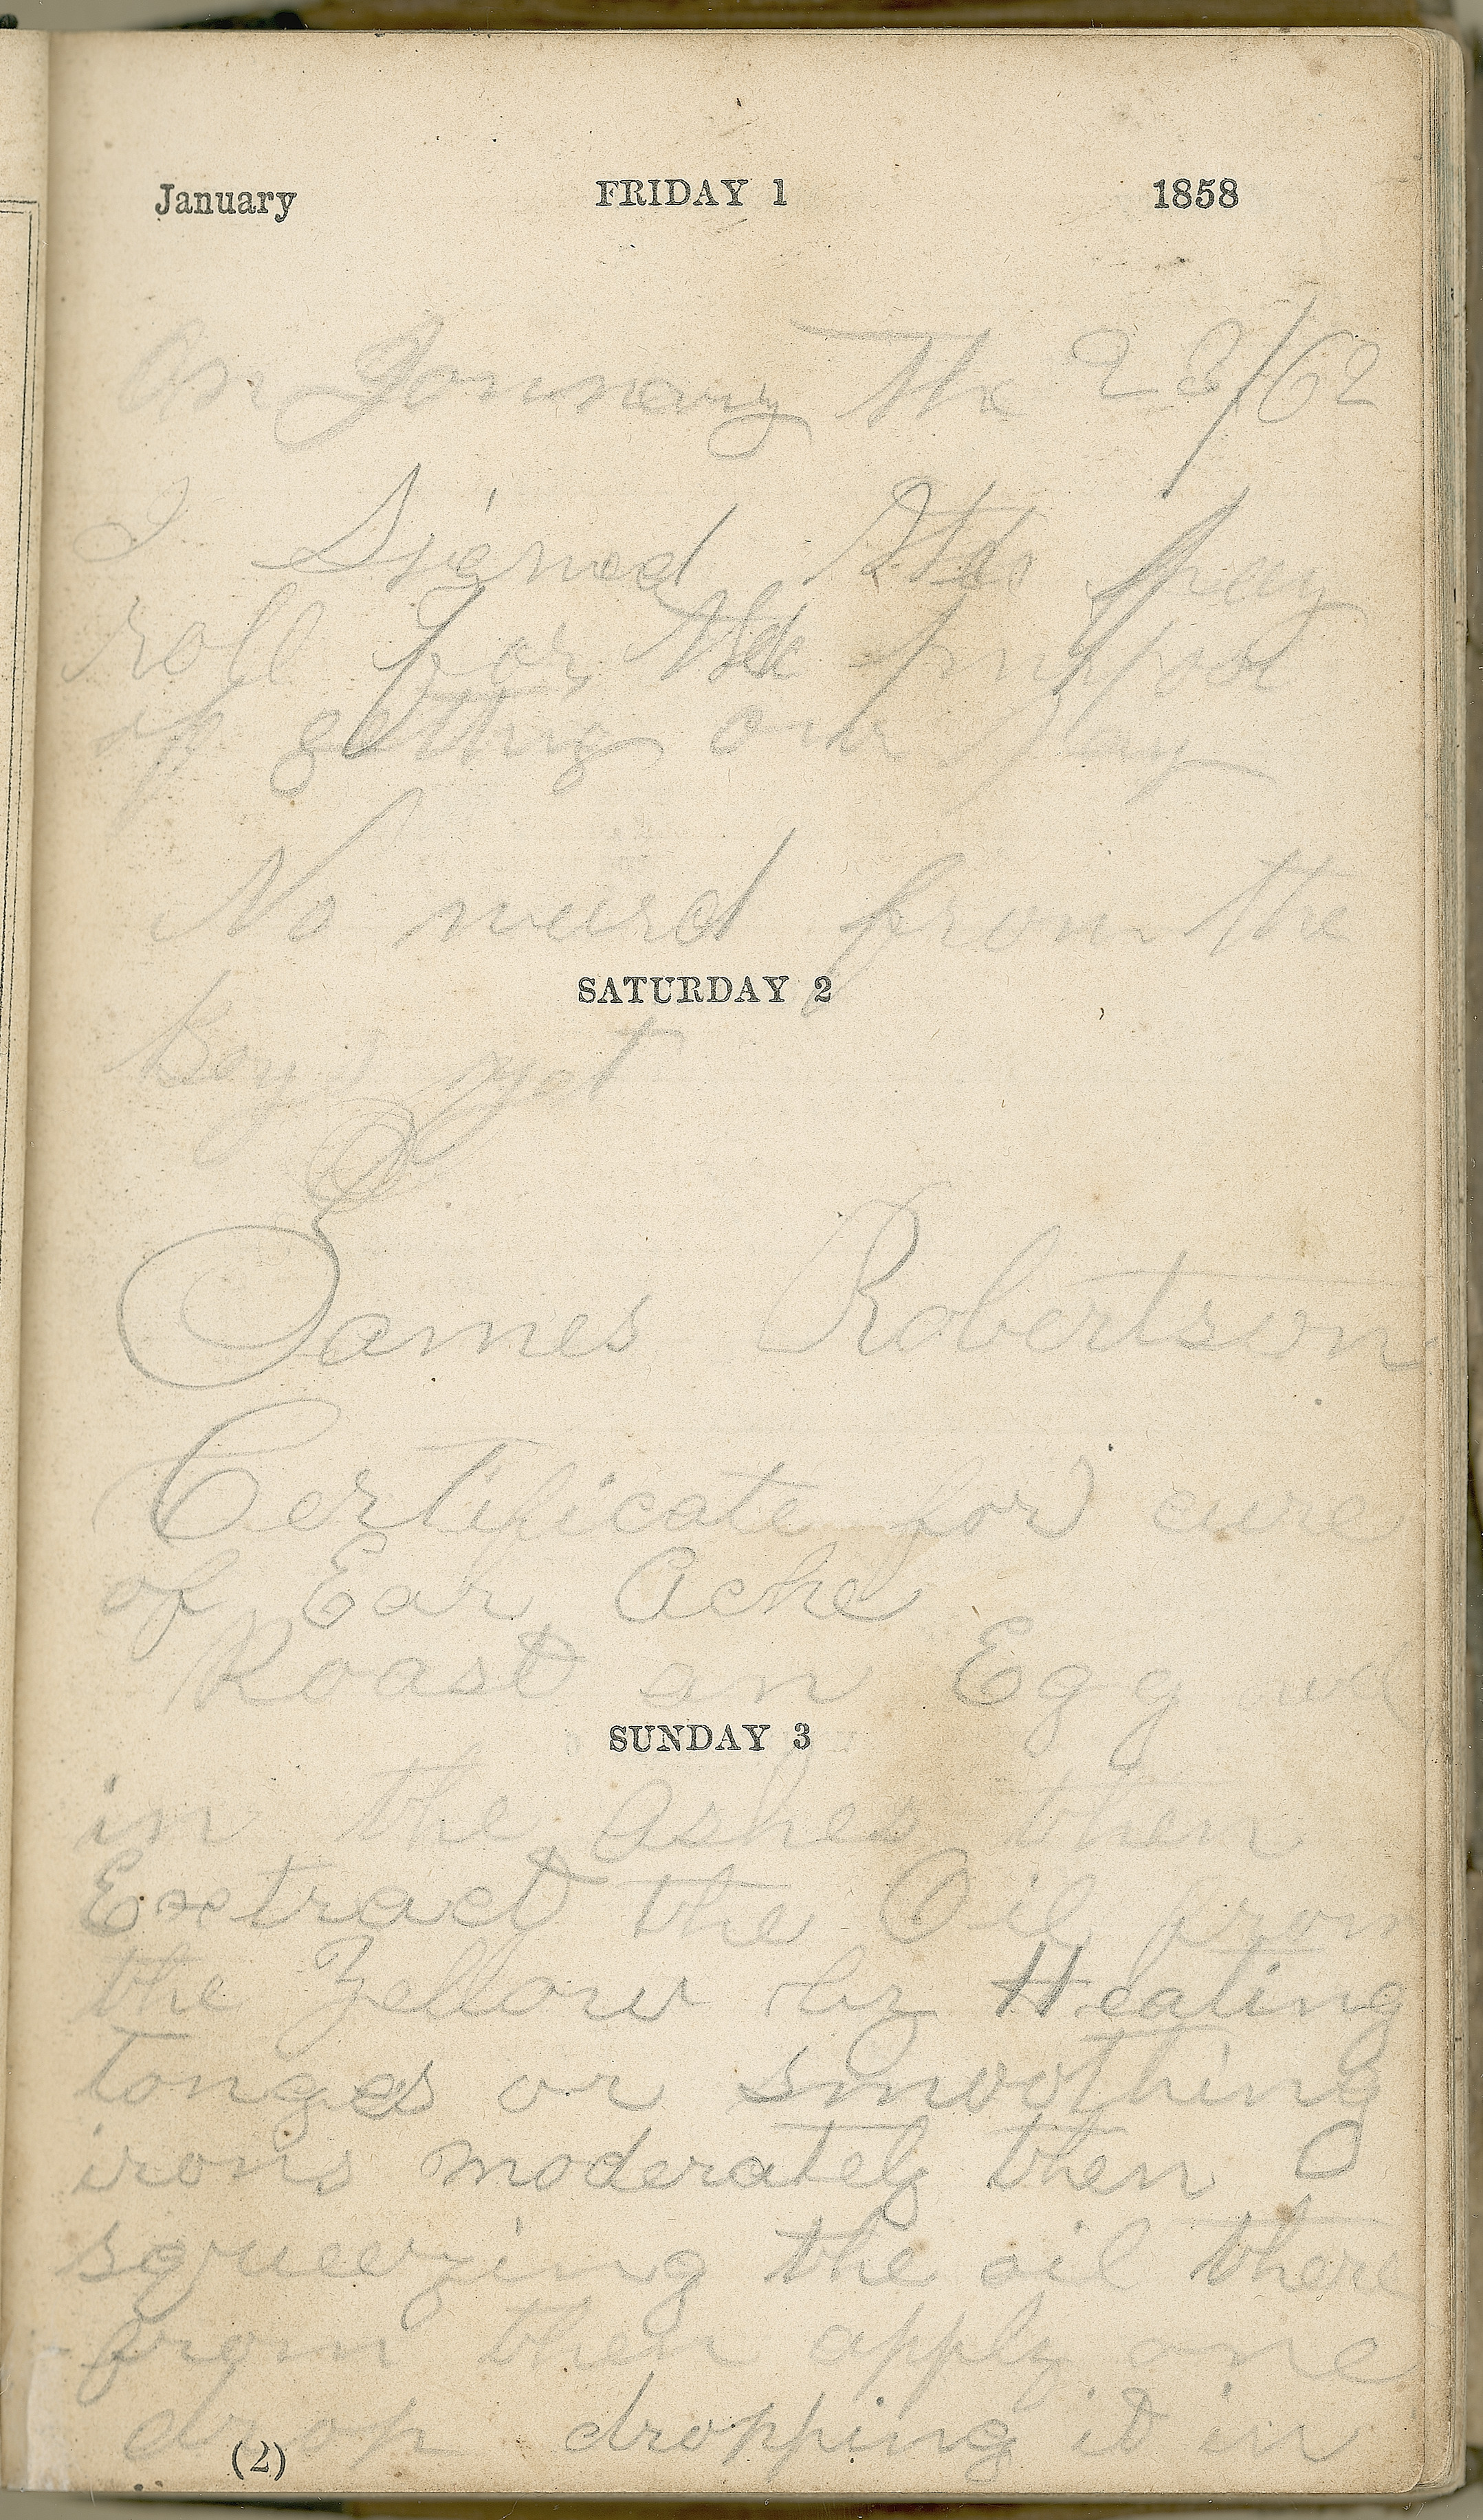 January FRIDAY 1 1858
On Jonuary the 28/62
I Signed the pay
roll for the purpose
of getting our pay
No wurd from the
SATURDAY 2
Boys yet
James Robertson
Certificate for cure
of Ear Ache
Roast an Egg
SUNDAY 3
in the Ashes then
Extract the Oil from
the Yellow by Heating
tonges or smoothing
irons moderately then
squeezing the oil there
from then apply one
drop dropping it in
(2)